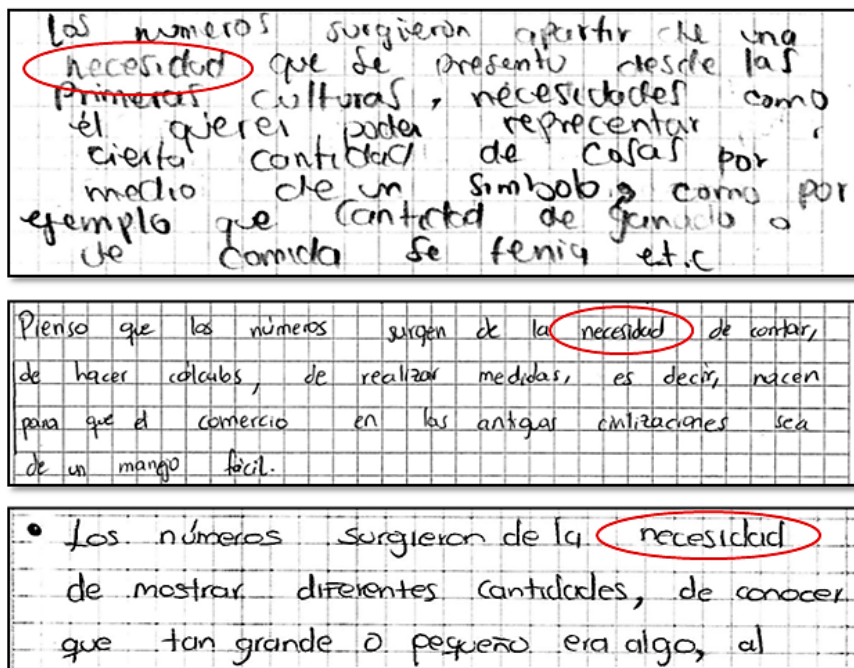 Los numeros surgieron apartir de una
necesidad que se presento desde las
Primeras culturas, necesidades como
el querer poder reprecentar
cierta cantidad de cosas por
medio de un simbolo, como por
ejemplo que cantidad de ganado o
de comida se tenia et.c
Pienso que los números surgen de la necesidad de contar,
de hacer cálculos, de realizar medidas, es decir, nacen
para que el comercio en las antigas civilizaciones sea
de un manejo fácil.
• Los números surgieron de la necesidad
de mostrar diferentes cantidades, de conocer
que tan grande o pequeño era algo, al